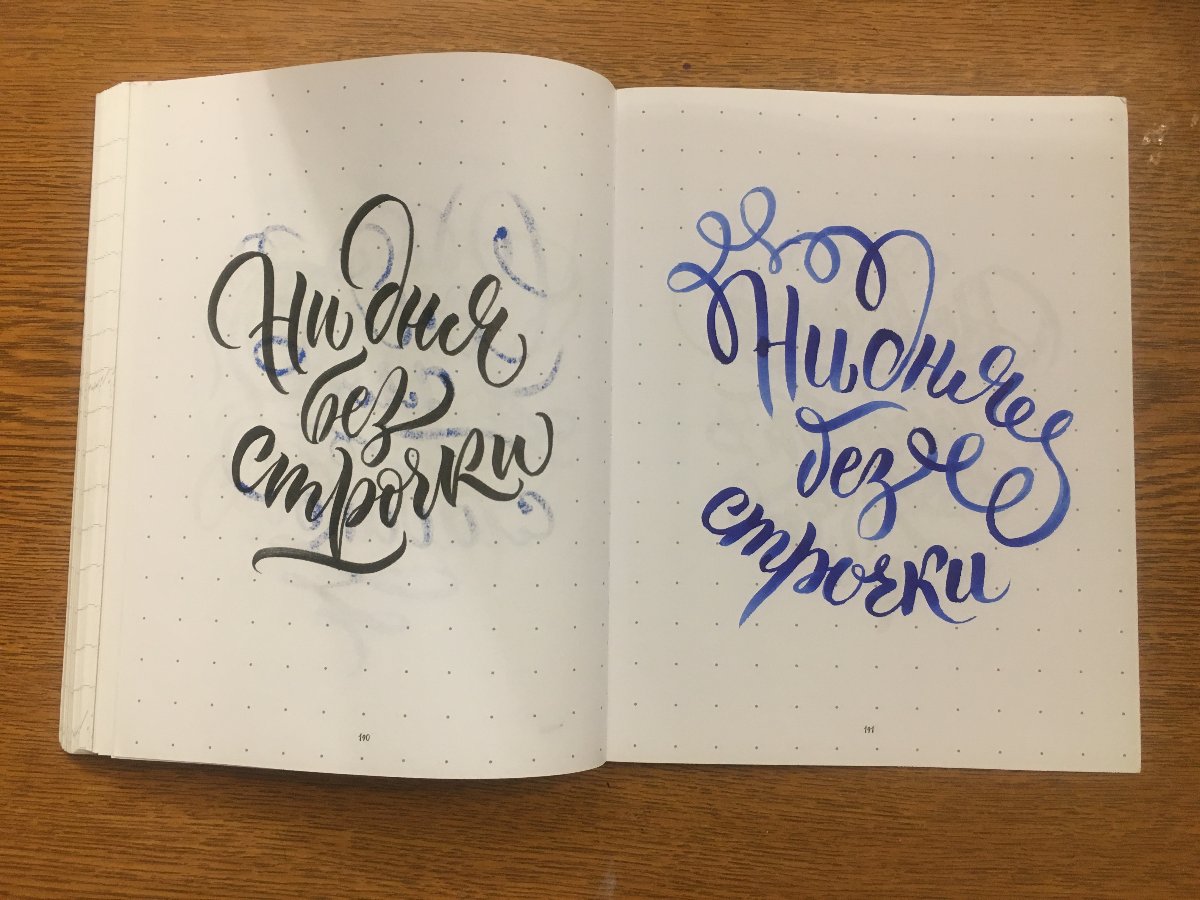 Ни дня
без
строчки
190
Ни дня
без
строчки
191